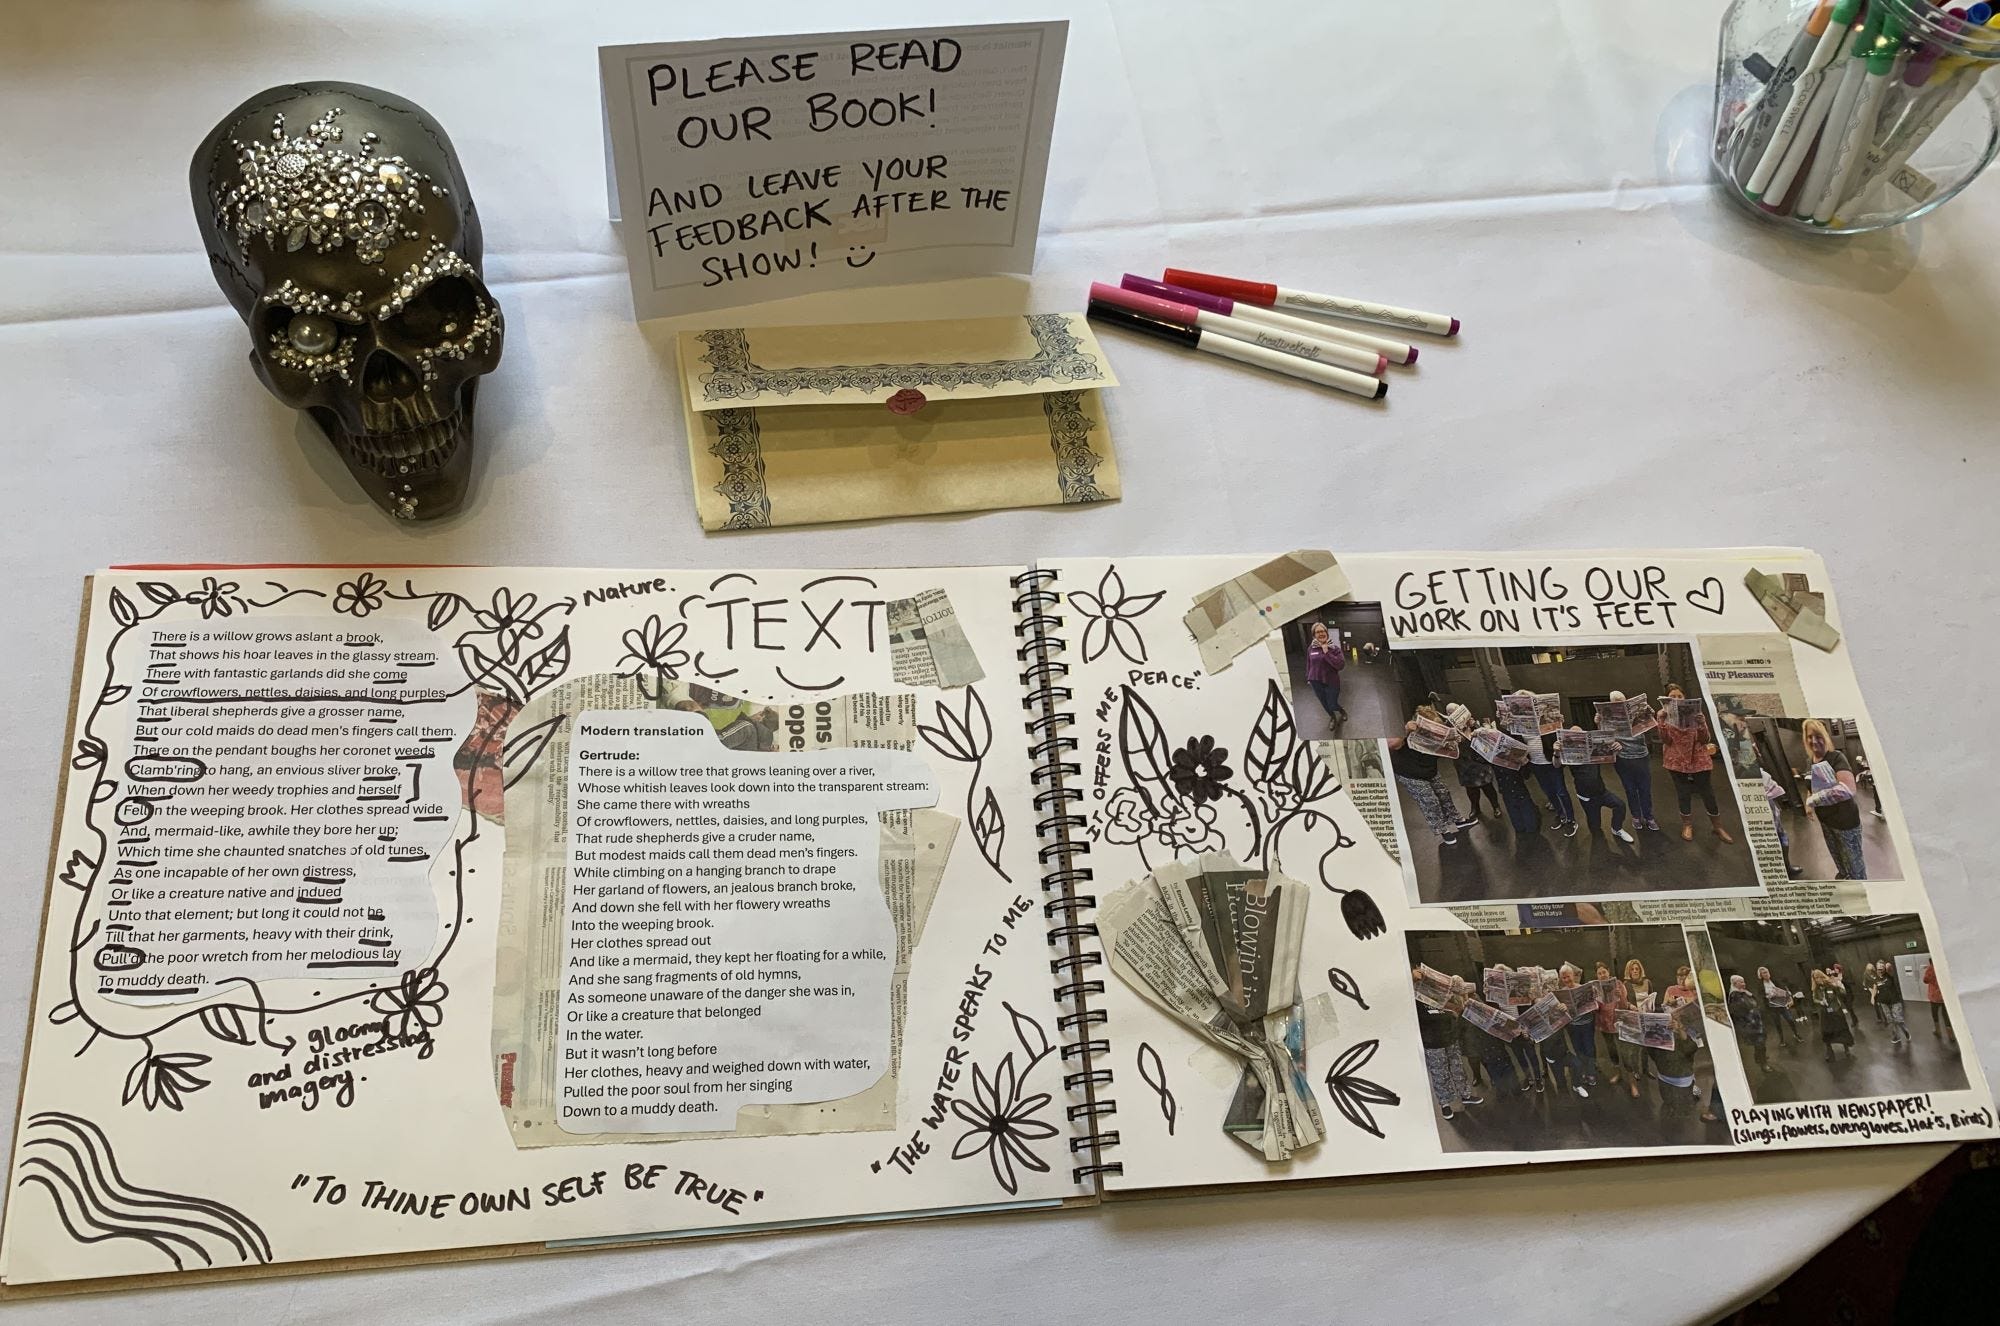 PLEASE READ
OUR BOOK!
AND LEAVE YOUR
FEEDBACK AFTER THE
SHOW!
KreativeKraft
Nature.
TEXT
There is a willow grows aslant a brook,
That shows his hoar leaves in the glassy stream.
There with fantastic garlands did she come
Of crowflowers, nettles, daisies, and long purples,
That liberal shepherds give a grosser name,
But our cold maids do dead men's fingers call them.
There on the pendant boughs her coronet weeds
Clamb'ring to hang, an envious sliver broke,
When down her weedy trophies and herself
Fell in the weeping brook. Her clothes spread wide
And, mermaid-like, awhile they bore her up;
Which time she chaunted snatches of old tunes,
As one incapable of her own distress,
Or like a creature native and indued
Unto that element; but long it could not be
Till that her garments, heavy with their drink,
Pull'd the poor wretch from her melodious lay
To muddy death.
gloomy
and distressing
imagery.
Modern translation
Gertrude:
There is a willow tree that grows leaning over a river,
Whose whitish leaves look down into the transparent stream:
She came there with wreaths
Of crowflowers, nettles, daisies, and long purples,
That rude shepherds give a cruder name,
But modest maids call them dead men's fingers.
While climbing on a hanging branch to drape
Her garland of flowers, an jealous branch broke,
And down she fell with her flowery wreaths
Into the weeping brook.
Her clothes spread out
And like a mermaid, they kept her floating for a while,
And she sang fragments of old hymns,
As someone unaware of the danger she was in,
Or like a creature that belonged
In the water.
But it wasn't long before
Her clothes, heavy and weighed down with water,
Pulled the poor soul from her singing
Down to a muddy death.
"TO THINE OWN SELF BE TRUE"
"THE WATER SPEAKS TO ME,
IT OFFERS ME
PEACE."
GETTING OUR
WORK ON IT'S FEET
METRO | 9
uilty Pleasures
Blowin' in
PLAYING WITH NEWSPAPER!
(Slings, flowers, ovengloves, Hat's, Birds)